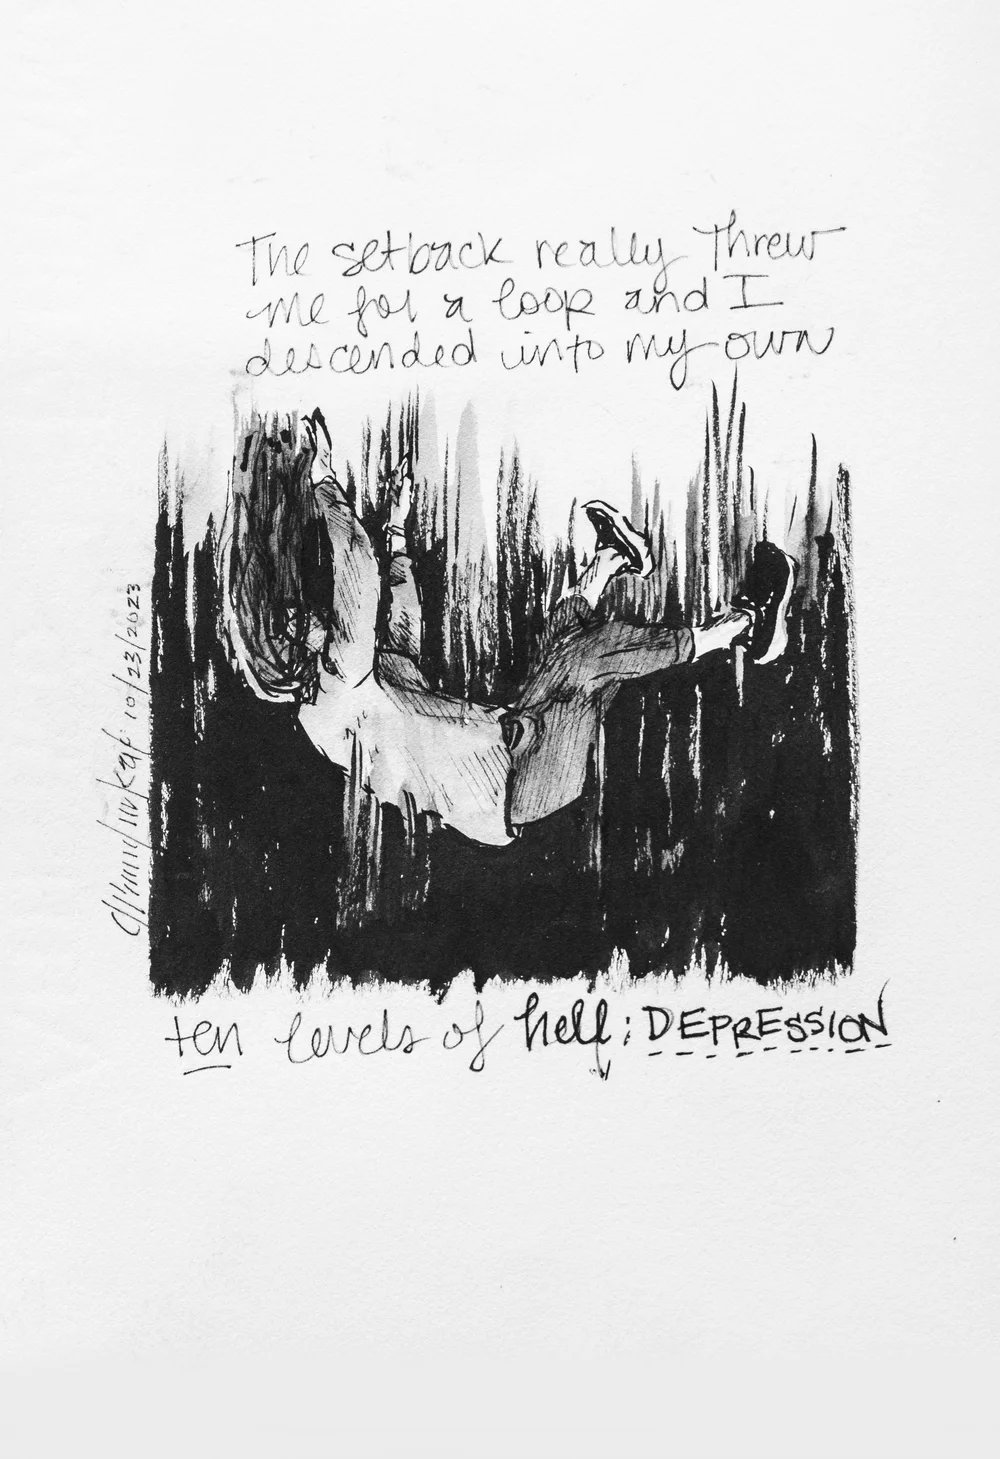 The setback really threw
me for a loop and I
descended into my own
10/23/2023
ten levels of hell; DEPRESSION